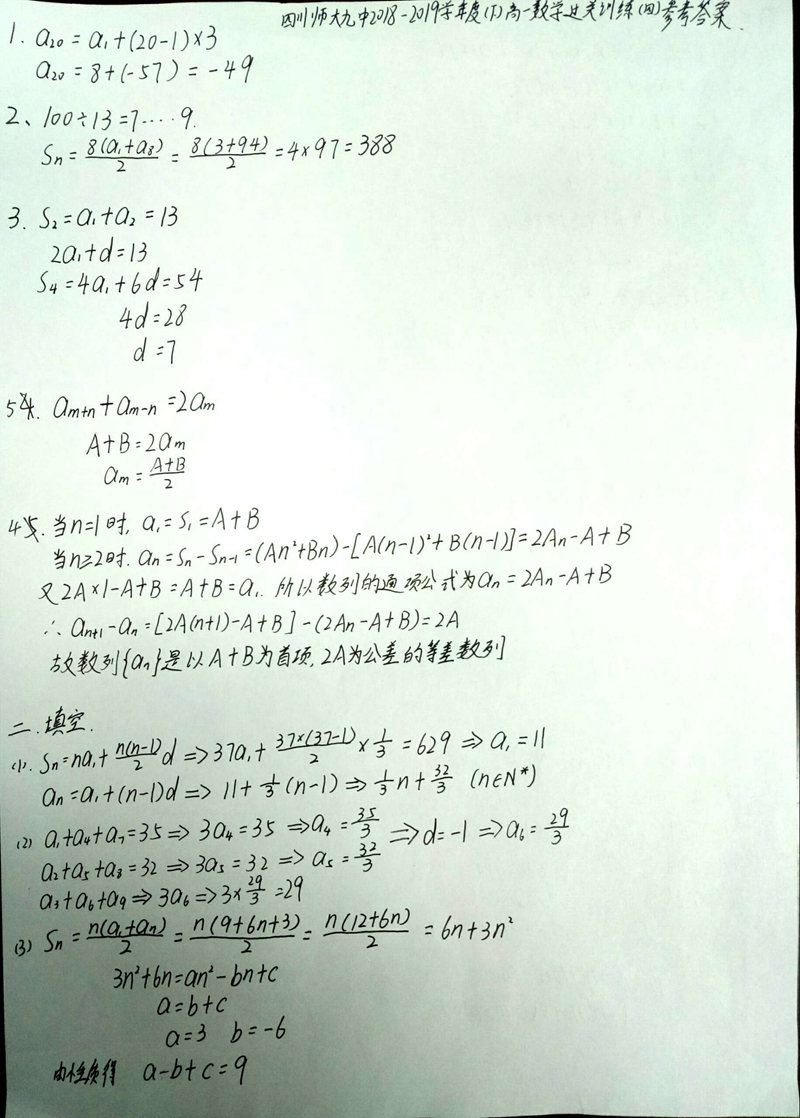 四川师大九中2018-2019学年度(下)高一数学过关训练(四)参考答案.
1. a₂₀=a₁+(20-1)×3
a₂₀=8+(-57)=-49
2、100÷13=7····9.
Sn=8(a₁+a₈)/2=8(3+94)/2=4×97=388
3. S₂=a₁+a₂=13
2a₁+d=13
S₄=4a₁+6d=54
4d=28
d=7
5. am+n+am-n=2am
A+B=2am
am=A+B/2
4. 当n=1时, a₁=S₁=A+B
当n≥2时. an=Sn-Sn-1=(An²+Bn)-[A(n-1)²+B(n-1)]=2An-A+B
又2A×1-A+B=A+B=a₁. 所以数列的通项公式为an=2An-A+B
∴ an+1-an=[2A(n+1)-A+B]-(2An-A+B)=2A
故数列{an}是以A+B为首项, 2A为公差的等差数列
二.填空.
(1). Sn=na₁+n(n-1)/2d⇒37a₁+37×(37-1)/2×1/3=629⇒a₁=11
an=a₁+(n-1)d⇒11+1/3(n-1)⇒1/3n+32/3 (n∈N*)
(2) a₁+a₄+a₇=35⇒3a₄=35⇒a₄=35/3⇒d=-1⇒a₆=29/3
a₂+a₅+a₈=32⇒3a₅=32⇒a₅=32/3
a₃+a₆+a₉⇒3a₆⇒3×29/3=29
(3) Sn=n(a₁+an)/2=n(9+6n+3)/2=n(12+6n)/2=6n+3n²
3n²+6n=an²-bn+c
a=b+c
a=3 b=-6
由性质得 a-b+c=9